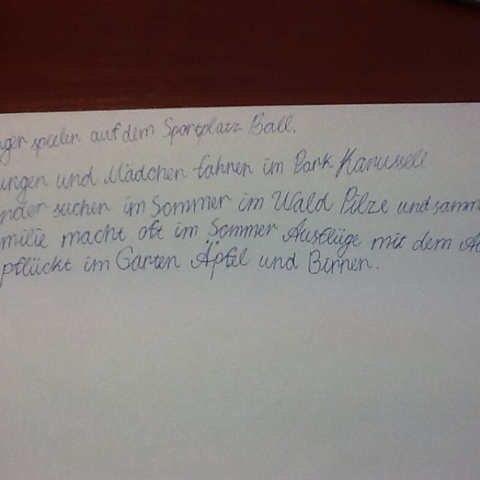 nger spielen auf dem Sportplatz Ball.
ungen und Mädchen fahren im Park Karussell
nder suchen im Sommer im Wald Pilze und samm
milie macht oft im Sommer Ausflüge mit dem A
pflückt im Garten Äpfel und Birnen.